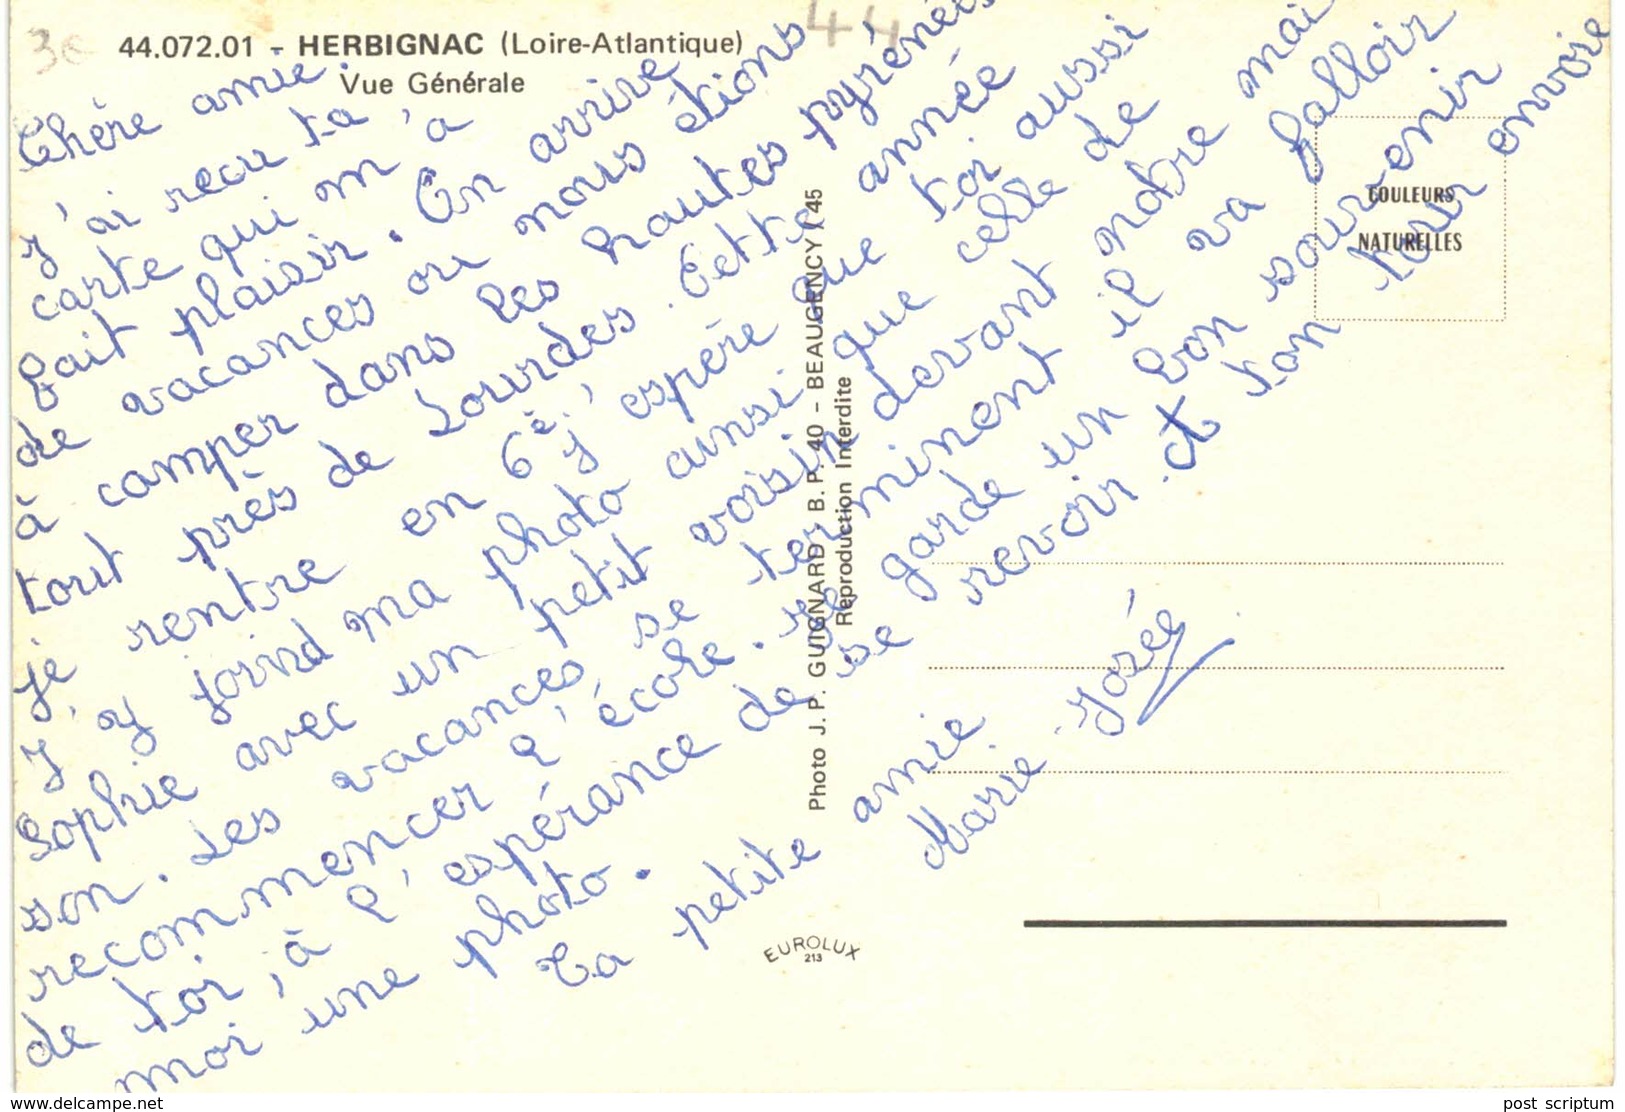 3€
44
44.072.01 - HERBIGNAC (Loire-Atlantique)
Vue Générale
Chère amie.
j'ai recu ta
carte qui m'a
fait plaisir. On arrive
de vacances ou nous étions
à camper dans les hautes pyrénées
tout près de Lourdes. Cette année
je rentre en 6è, j'espère que toi aussi
j'y joind ma photo ainsi que celle de
Sophie avec un petit voisin devant notre mai
son. Les vacances se terminent il va falloir
recommencer l'école. Je garde un bon souvenir
de toi, à l'espérance de se revoir. et ton tour envoie
moi une photo.
Ta petite amie
Marie-Josée
COULEURS
NATURELLES
Photo J. P. GUIGNARD B. P. 40 - BEAUGENCY / 45
Reproduction Interdite
EUROLUX
213
www.delcampe.net
post scriptum